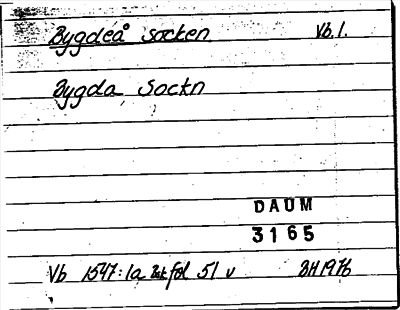 Bygdeå socken Vb.1.
Bygda Sockn
DAUM
3165
Vb 1547:1a fol 51 v BH 1976